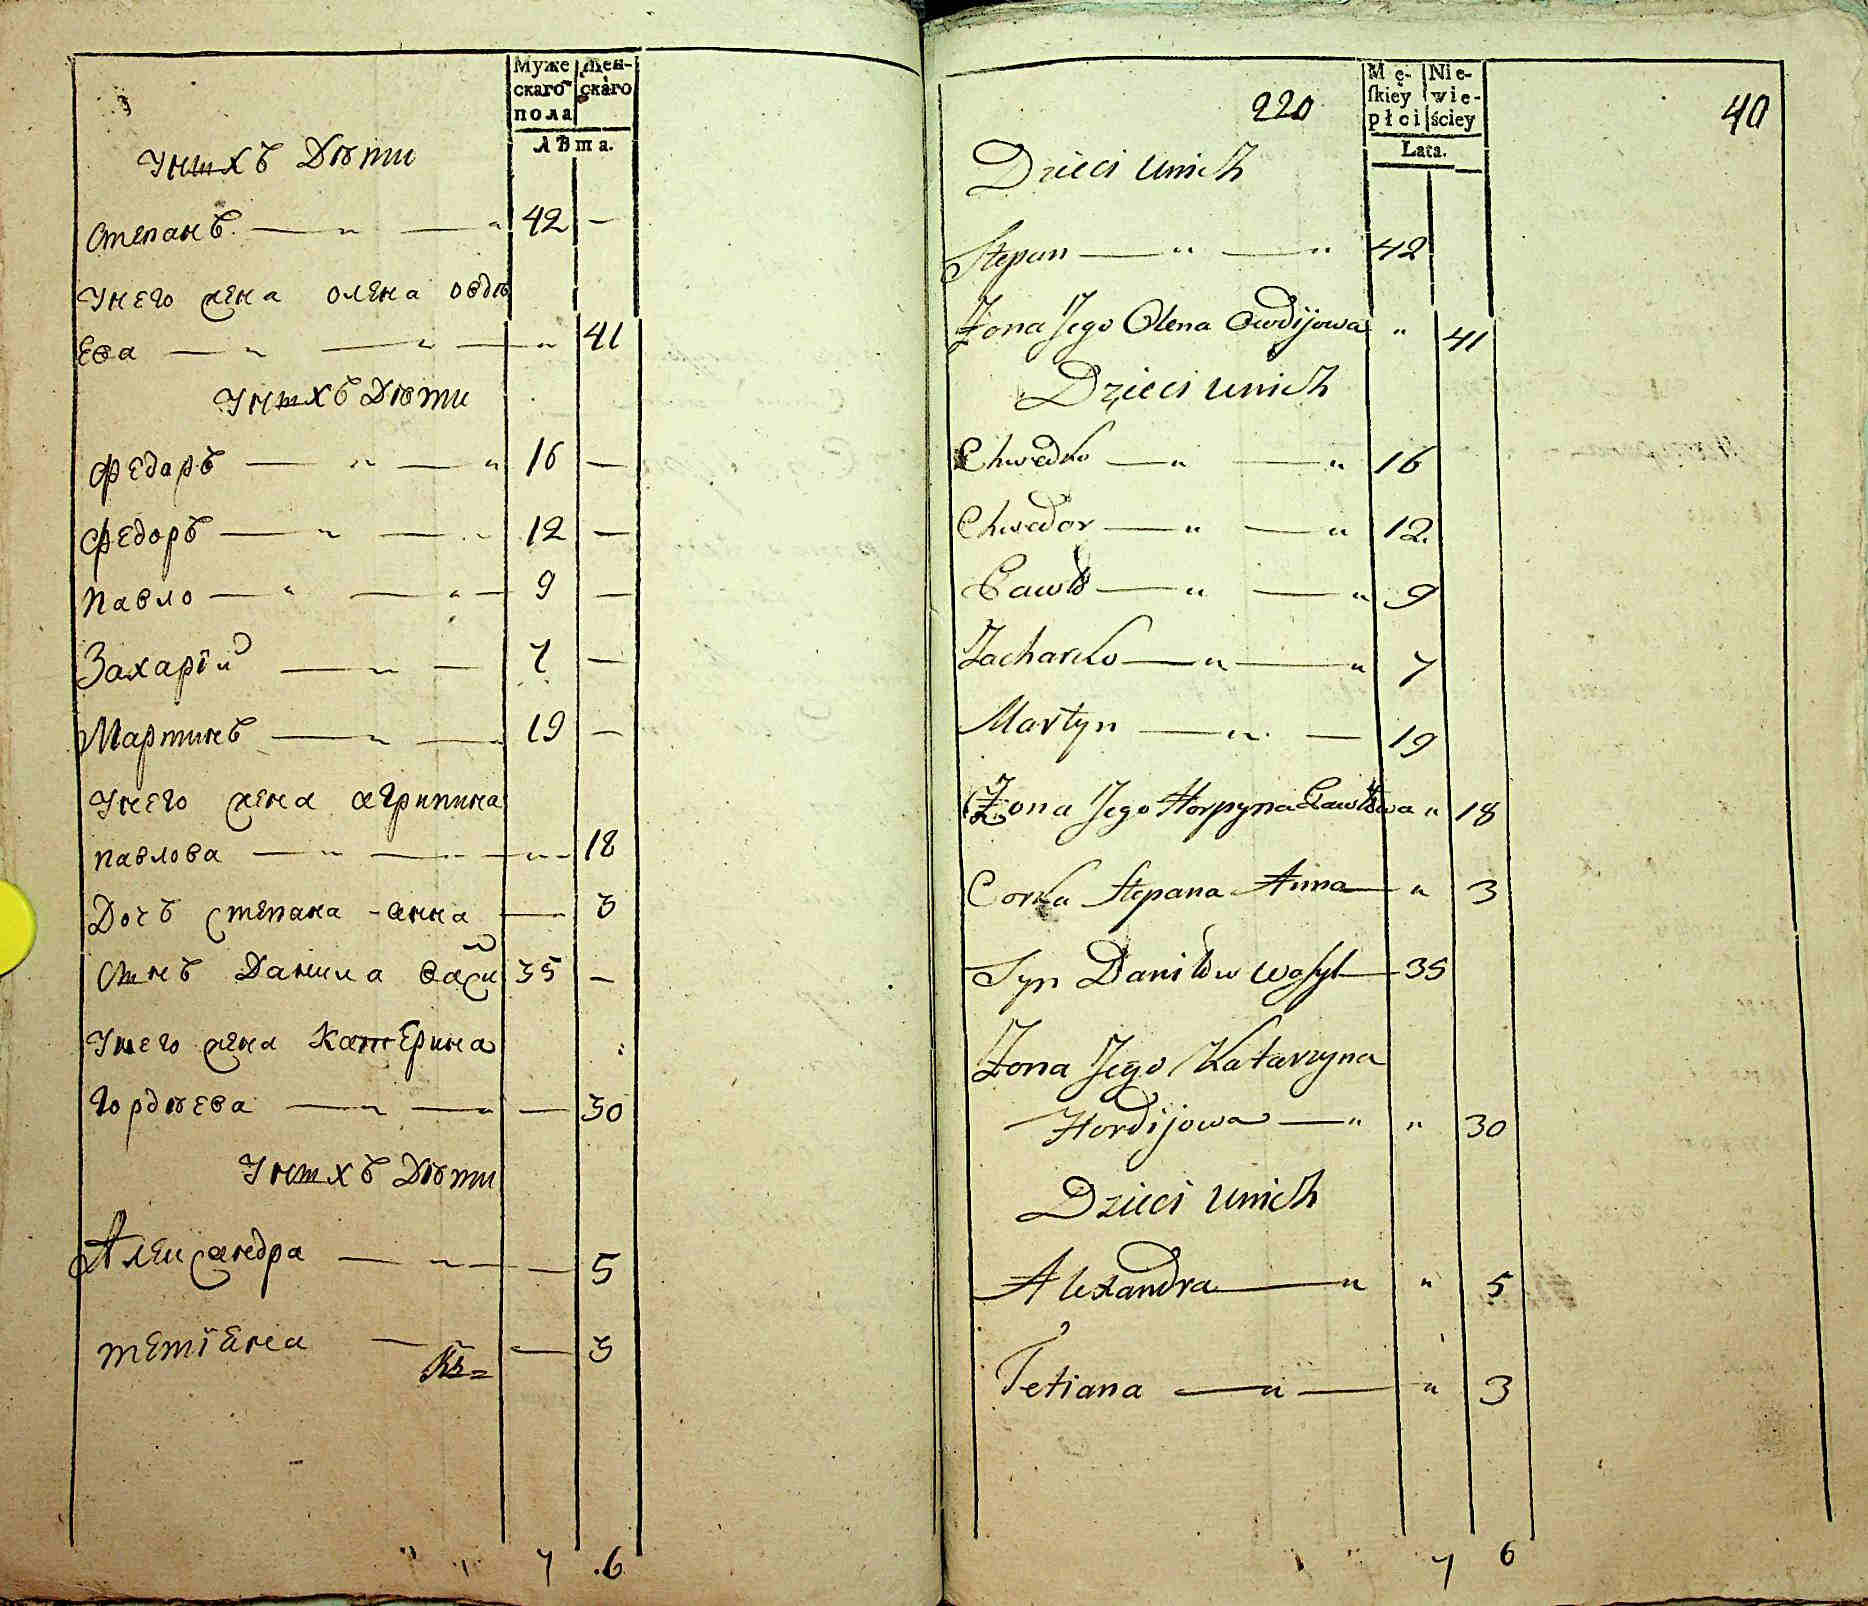 Муже
скаго
пола
Жен-
скаго
Лѣта.
Унихъ Дѣти
Степанъ — „ — „ 42 —
Унего жена олена овдѣ
ева — „ — „ — „ 41
Унихъ Дѣти
Федоръ — „ — „ 16 —
Федоръ — „ — „ 12 —
Павло — „ — „ — 9 —
Захарїй — „ — 7 —
Мартинъ — „ — 19 —
Унего жена агрипина
павлова — „ — „ — „ 18
Дочъ степана - анна — 3
Синъ Данила васи 35 —
Унего жена Катерина
Гордѣева — „ — „ — 30
Унихъ Дѣти
Александра — „ — — 5
тетїана — — 3
7 6
220
Mę-
ſkiey
płci
Nie-
wie-
ściey
Lata.
40
Dzieci unich
Stepan — „ — „ 42
Żona Jego Olena Owdijowa „ 41
Dzieci unich
Chwedko — „ — „ 16
Chwedor — „ — „ 12
Pawło — „ — „ 9
Zacharko — „ — „ 7
Martyn — „ — 19
Żona Jego Horpyna Pawłowa „ 18
Corka Stepana Anna — „ 3
Syn Daniłow Waſyl — 35
Żona Jego Katarzyna
Hordijowa — „ „ 30
Dzieci unich
Alexandra — „ „ 5
Tetiana — „ — „ 3
7 6